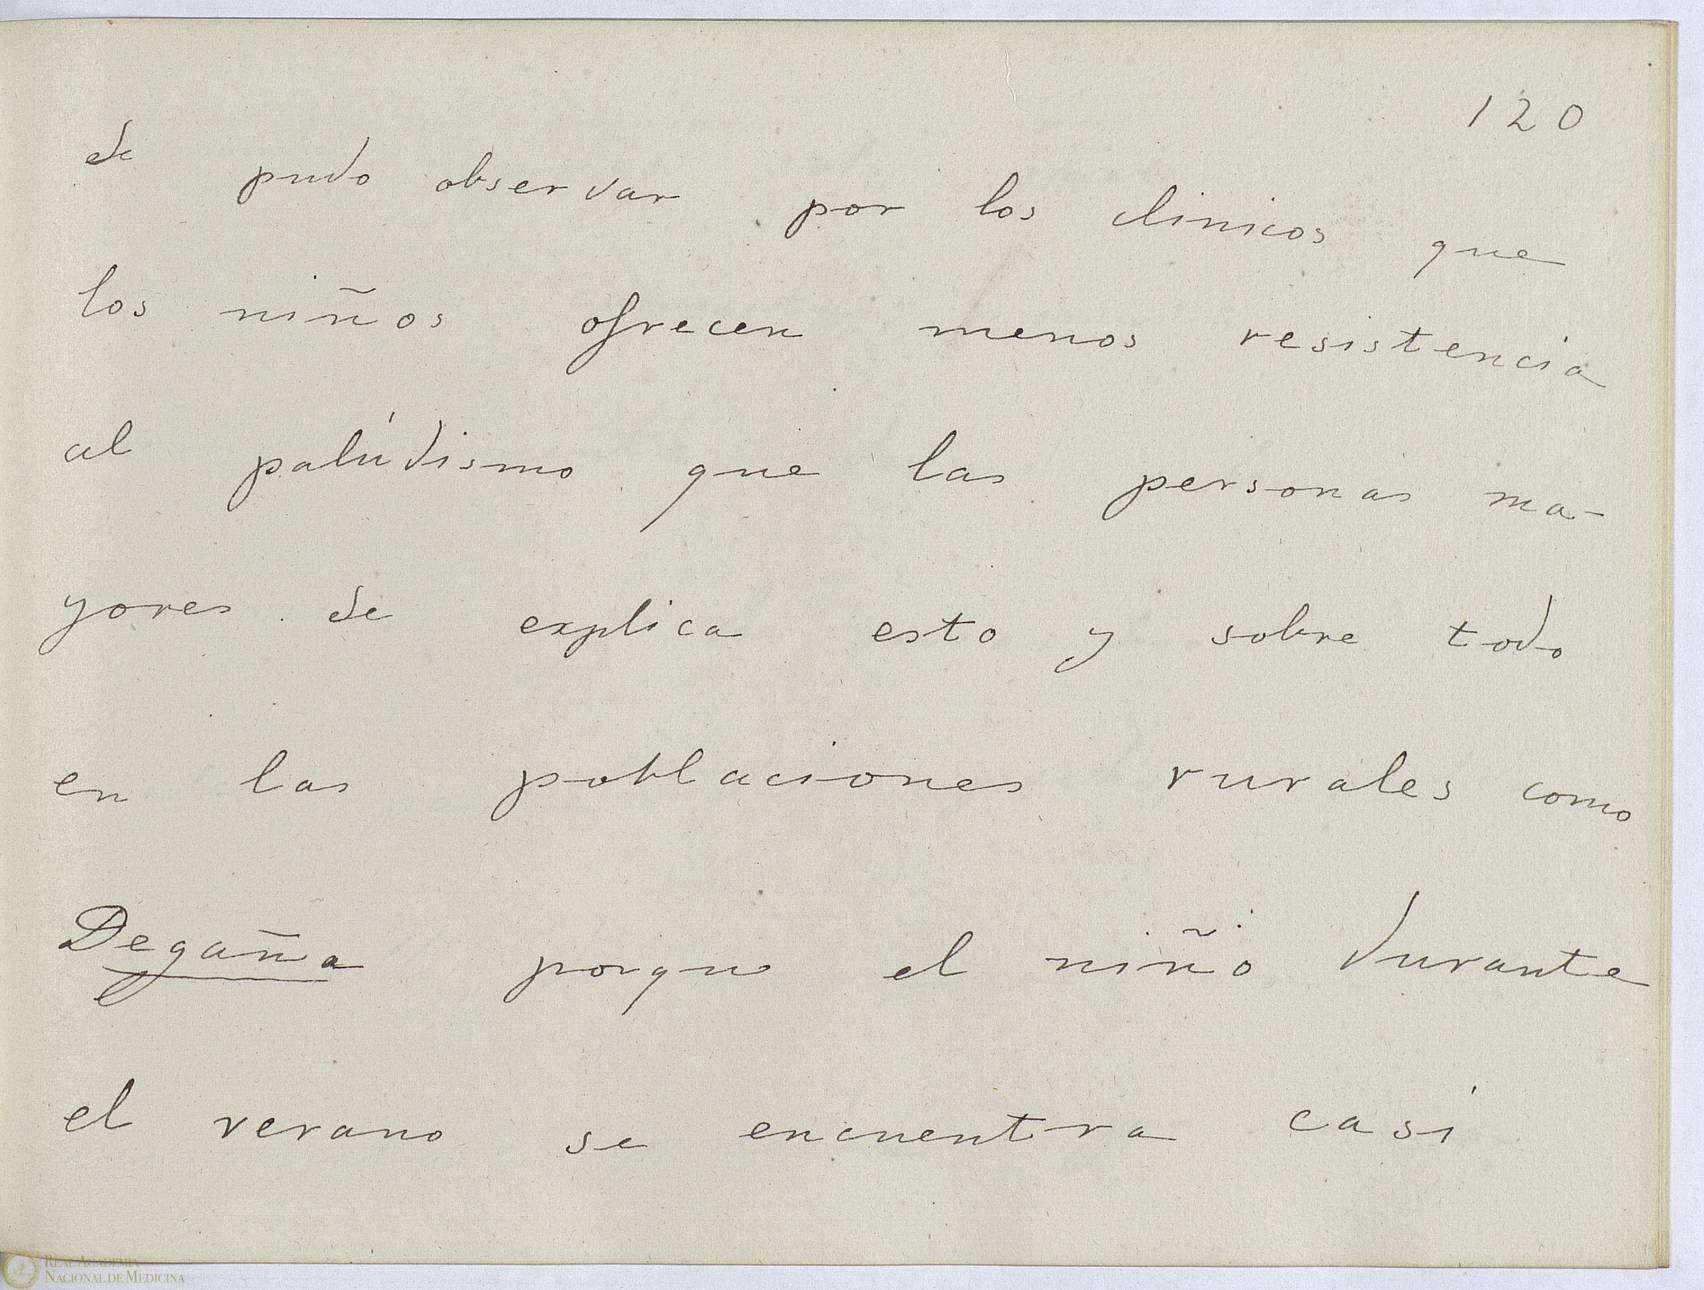 120
Se pudo observar por los clinicos que
los niños ofrecen menos resistencia
al palúdismo que las personas ma-
yores. Se explica esto y sobre todo
en las poblaciones rurales como
Degaña porque el niño durante
el verano se encuentra casi
REAL ACADEMIA
NACIONAL DE MEDICINA